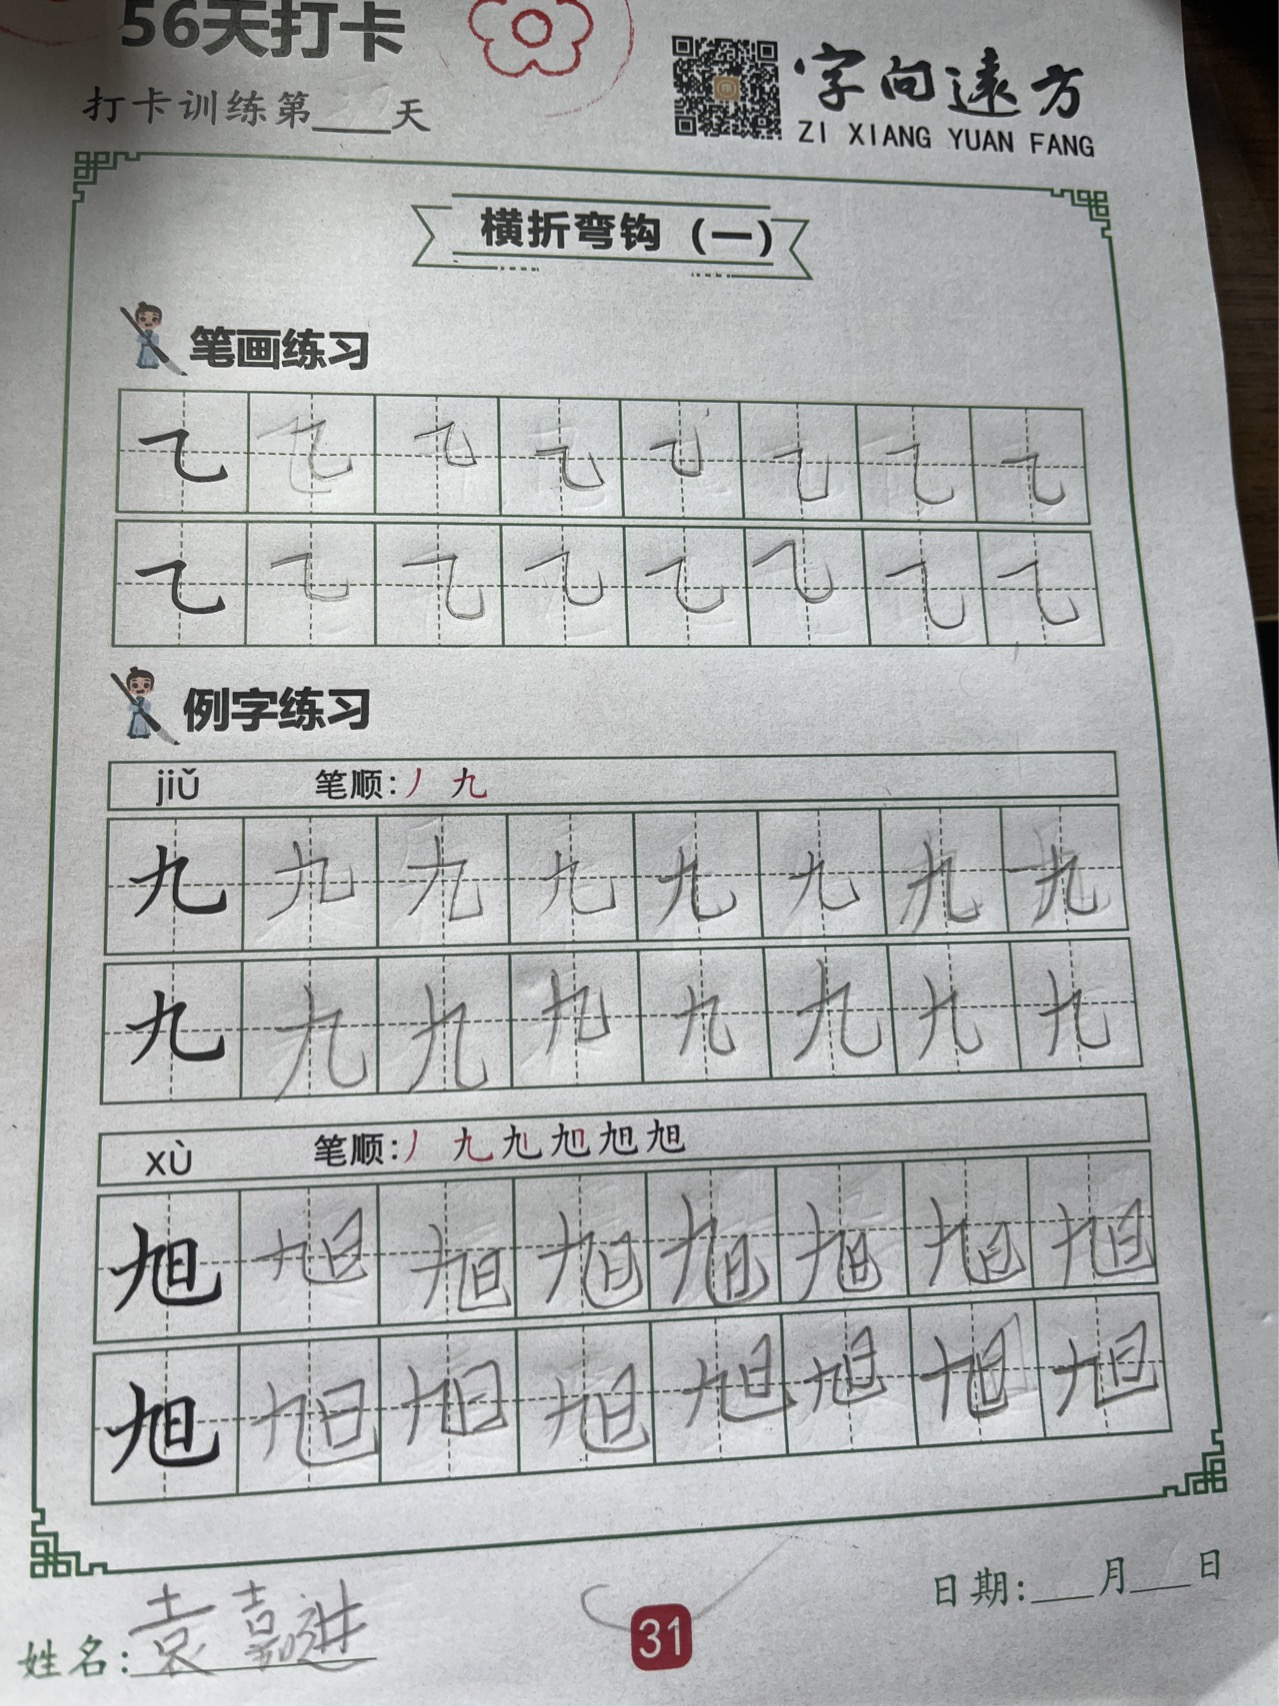 56天打卡
打卡训练第___天
字向远方
ZI XIANG YUAN FANG
横折弯钩（一）
笔画练习
乁 乁 乁 乁 乁 乁 乁 乁
乁 乁 乁 乁 乁 乁 乁 乁
例字练习
jiǔ 笔顺:丿 九
九 九 九 九 九 九 九 九
九 九 九 九 九 九 九 九
xù 笔顺:丿 九 九 旭 旭 旭
旭 旭 旭 旭 旭 旭 旭 旭
旭 旭 旭 旭 旭 旭 旭 旭
日期:___月___日
姓名:袁嘉进
31